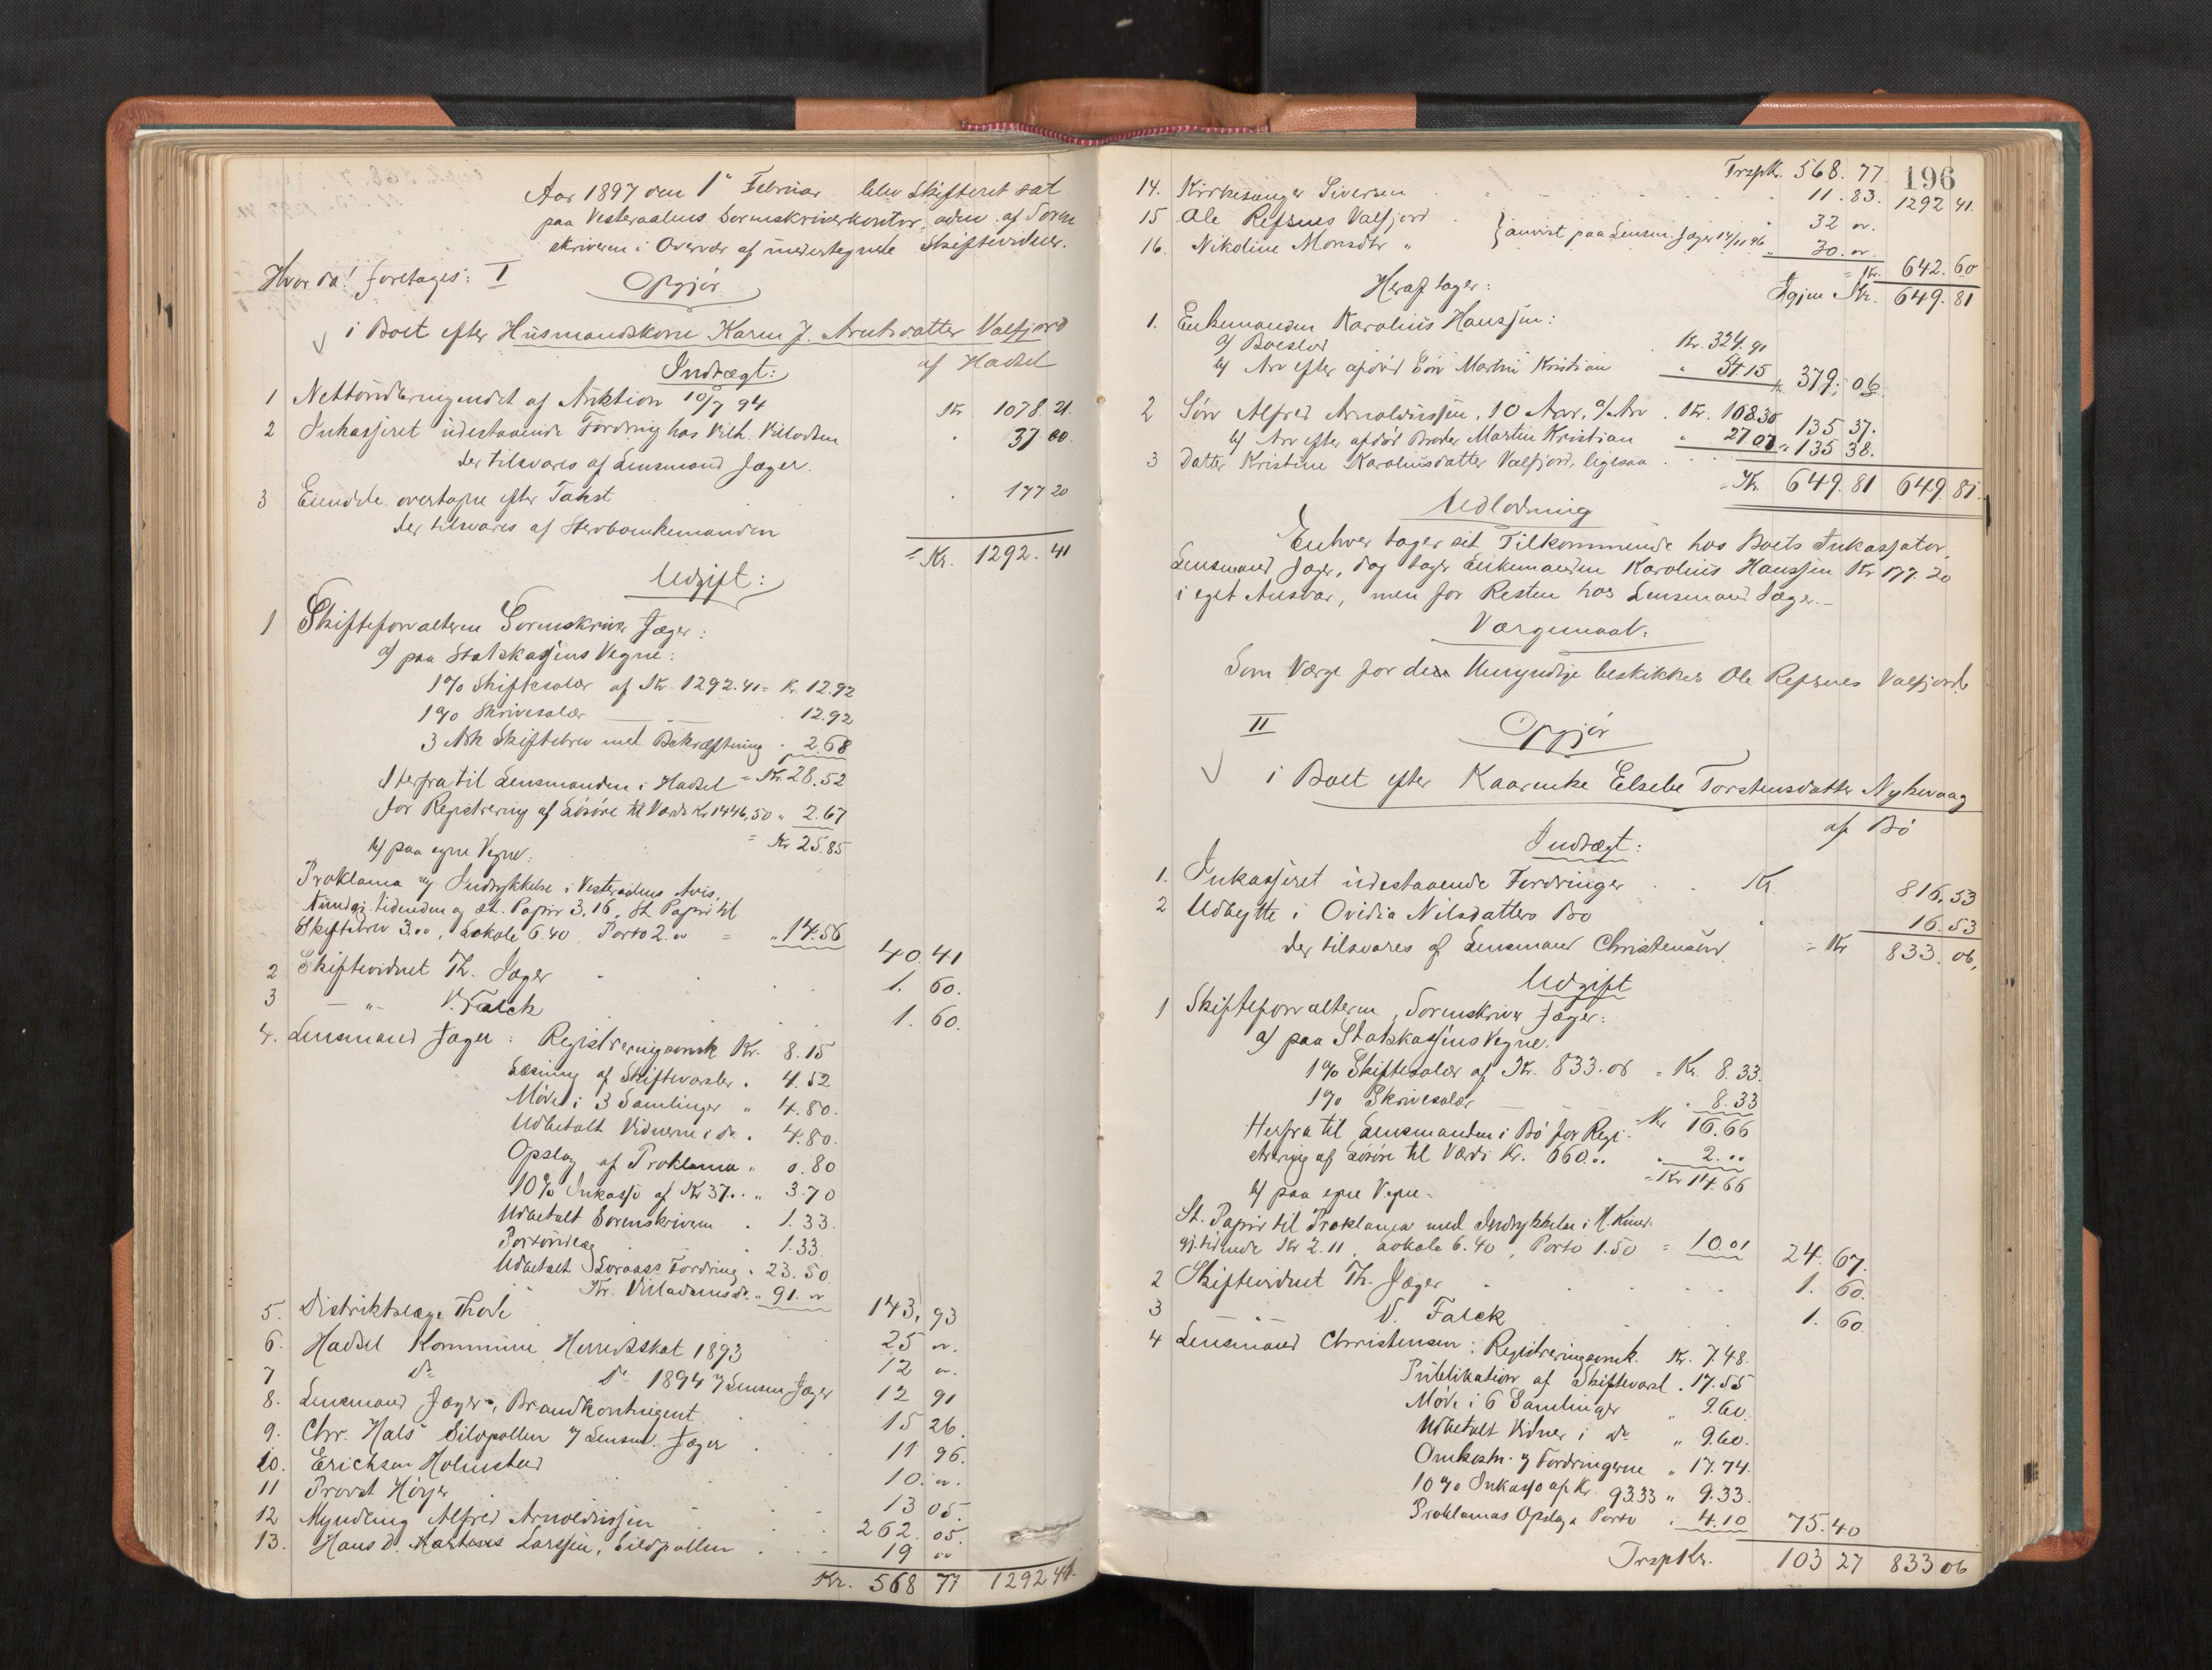 Aar 1897 den 1ste Februar blev Skifteret sat
paa Vesteraalens Sorenskriverkontor, adm. af Soren
skriveren i Overvær af undertegnede Skiftevidner.
Hvor da! foretages: I
Opgjør
i Boet efter Husmandskone Karen J. Arntsdatter Valfjord
af Hadsel
Indtægt:
1 Nettoudbringendet af Auktion 10/7 94 Kr. 1078.21.
2 Inkasseret udestaaende Fordring hos Vilh. Villadsen " 37.00.
der tilsvares af Lensmand Jæger.
3 Eiendele overtagne efter Takst " 177 20
der tilsvares af Stervboenkemanden
= Kr. 1292.41
Udgift:
1 Skifteforvalteren Sorenskriver Jæger:
a/ paa Statskassens Vegne:
1% Skiftesalær af Kr. 1292.41 = Kr. 12.92
1% Skrivesalær — " 12.92
3 Ark Skiftebrev med Bekræftning " 2.68
= Kr. 28.52
Herfra til Lensmanden i Hadsel
for Registrering af Løsøre til Værdi Kr 1446,50 " 2.67
= Kr 25.85
b/ paa egne Vegne:
Proklama og Indrykkelse i Vesteraalens Avis,
Kundgj.tidenden og st. Papir 3.16, St. Papir til
Skiftebrev 3.00, Lokale 6.40, Porto 2.00 = " 14.56 40.41
2 Skiftevidnet Th. Jæger 1. 60.
3 — " — V. Falck 1. 60.
4. Lensmand Jæger: Registreringsomk. Kr. 8.15
Læsning af Skiftevarsler " 4.52
Møde i 3 Samlinger " 4.80.
Udbetalt Vidnerne i do " 4.80.
Opslag af Proklama " 0.80
10% Inkasso af Kr 37.. " 3.70
Udbetalt Sorenskriveren " 1.33.
Portoudlæg " 1.33.
Udbetalt Fordring " 23.50
Kr. " 91. 00 143,93
5. Distriktslæge Thode 25 00.
6. Hadsel Kommune Herredsskat 1893 12 00.
7 Do Do 1894 Lensm Jæger 12 91
8. Lensmand Jæger, Brandkontingent 15 26.
9. Chr. Hals Sildpollen Lensm. Jæger 11 96.
10. Erichsen Holmstad 10. 00.
11 Provst Høyer 13 05.
12 Myndling Alfred Arnoldussen 262. 05.
13. Hans D. Larssen, Sildpollen 19 00
Kr. 568 77 1292 41.
196
Trspk. 568.77 1292 41.
14. Kirkesanger Siversen 11.83.
15 Ole Refsnes Valfjord 32 00.
} anvist paa Lensm. Jæger 14/11 96
16. Nikoline Monsdtr " 30. 00.
= Kr. 642.60
Igjen Kr. 649.81
Heraf tager:
1. Enkemanden Karolius Hanssen:
a/ Boeslod Kr. 324.91
b/ Arv efter afdød Søn Martin Kristian " 54 15 Kr. 379.06.
2 Søn Alfred Arnoldussen, 10 Aar, a/ Arv Kr. 108.30
b/ Arv efter afdød Broder Martin Kristian " 27 07 135 37.
3 Datter Kristine Karoliusdatter Valfjord, ligesaa " 135 38.
= Kr. 649.81 649.81.
Udlodning
Enhver tager sit Tilkommende hos Boets Inkassator,
Lensmand Jæger, dog tager Enkemanden Karolius Hanssen Kr 177.20
i eget Ansvar, men for Resten hos Lensmand Jæger.—
Værgemaal:
Som Værge for den Umyndige beskikkes Ole Refsnes Valfjord.
II Opgjør
i Boet efter Kaarenke Elsebe Torstensdatter Nykvaag
af Bø
Indtægt:
1. Inkasseret udestaaende Fordringer Kr. 816.53
2 Udbytte i Ovidia Nilsdatters Bo " 16.53
der tilsvares af Lensmand Christensen = Kr 833.06,
Udgift
1 Skifteforvalteren, Sorenskriver Jæger:
a/ paa Statskassens Vegne.
1% Skiftesalær af Kr. 833.06 = Kr. 8.33.
1% Skrivesalær — " 8.33
Kr 16.66
Herfra til Lensmanden i Bø for Regi-
strering af Løsøre til Værdi Kr. 660.. " 2...
= Kr 14.66
b/ paa egne Vegne:
St. Papir til Proklama med Indrykkelse i N. Kund.
gj.tidende Kr 2.11, Lokale 6.40, Porto 1.50 = 10.01 24.67.
2 Skiftevidnet Th. Jæger 1. 60.
3 " V. Falck 1. 60.
4 Lensmand Christensen: Registreringsomk. Kr. 7.48.
Publikation af Skiftevarsl " 17.55
Møde i 6 Samlinger " 9.60.
Udbetalt Vidner i do " 9.60.
Omkostn. Fordringerne " 17.74.
10% Inkasso af Kr. 93.33 " 9.33.
Proklamas Opslag, Porto " 4.10 75.40
Trsp Kr. 103 27 833 06